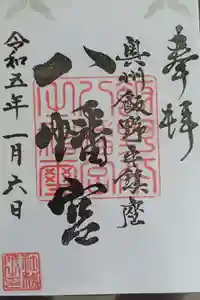 奉拝
奥州飯野平鎮座
八幡宮
令和五年一月六日